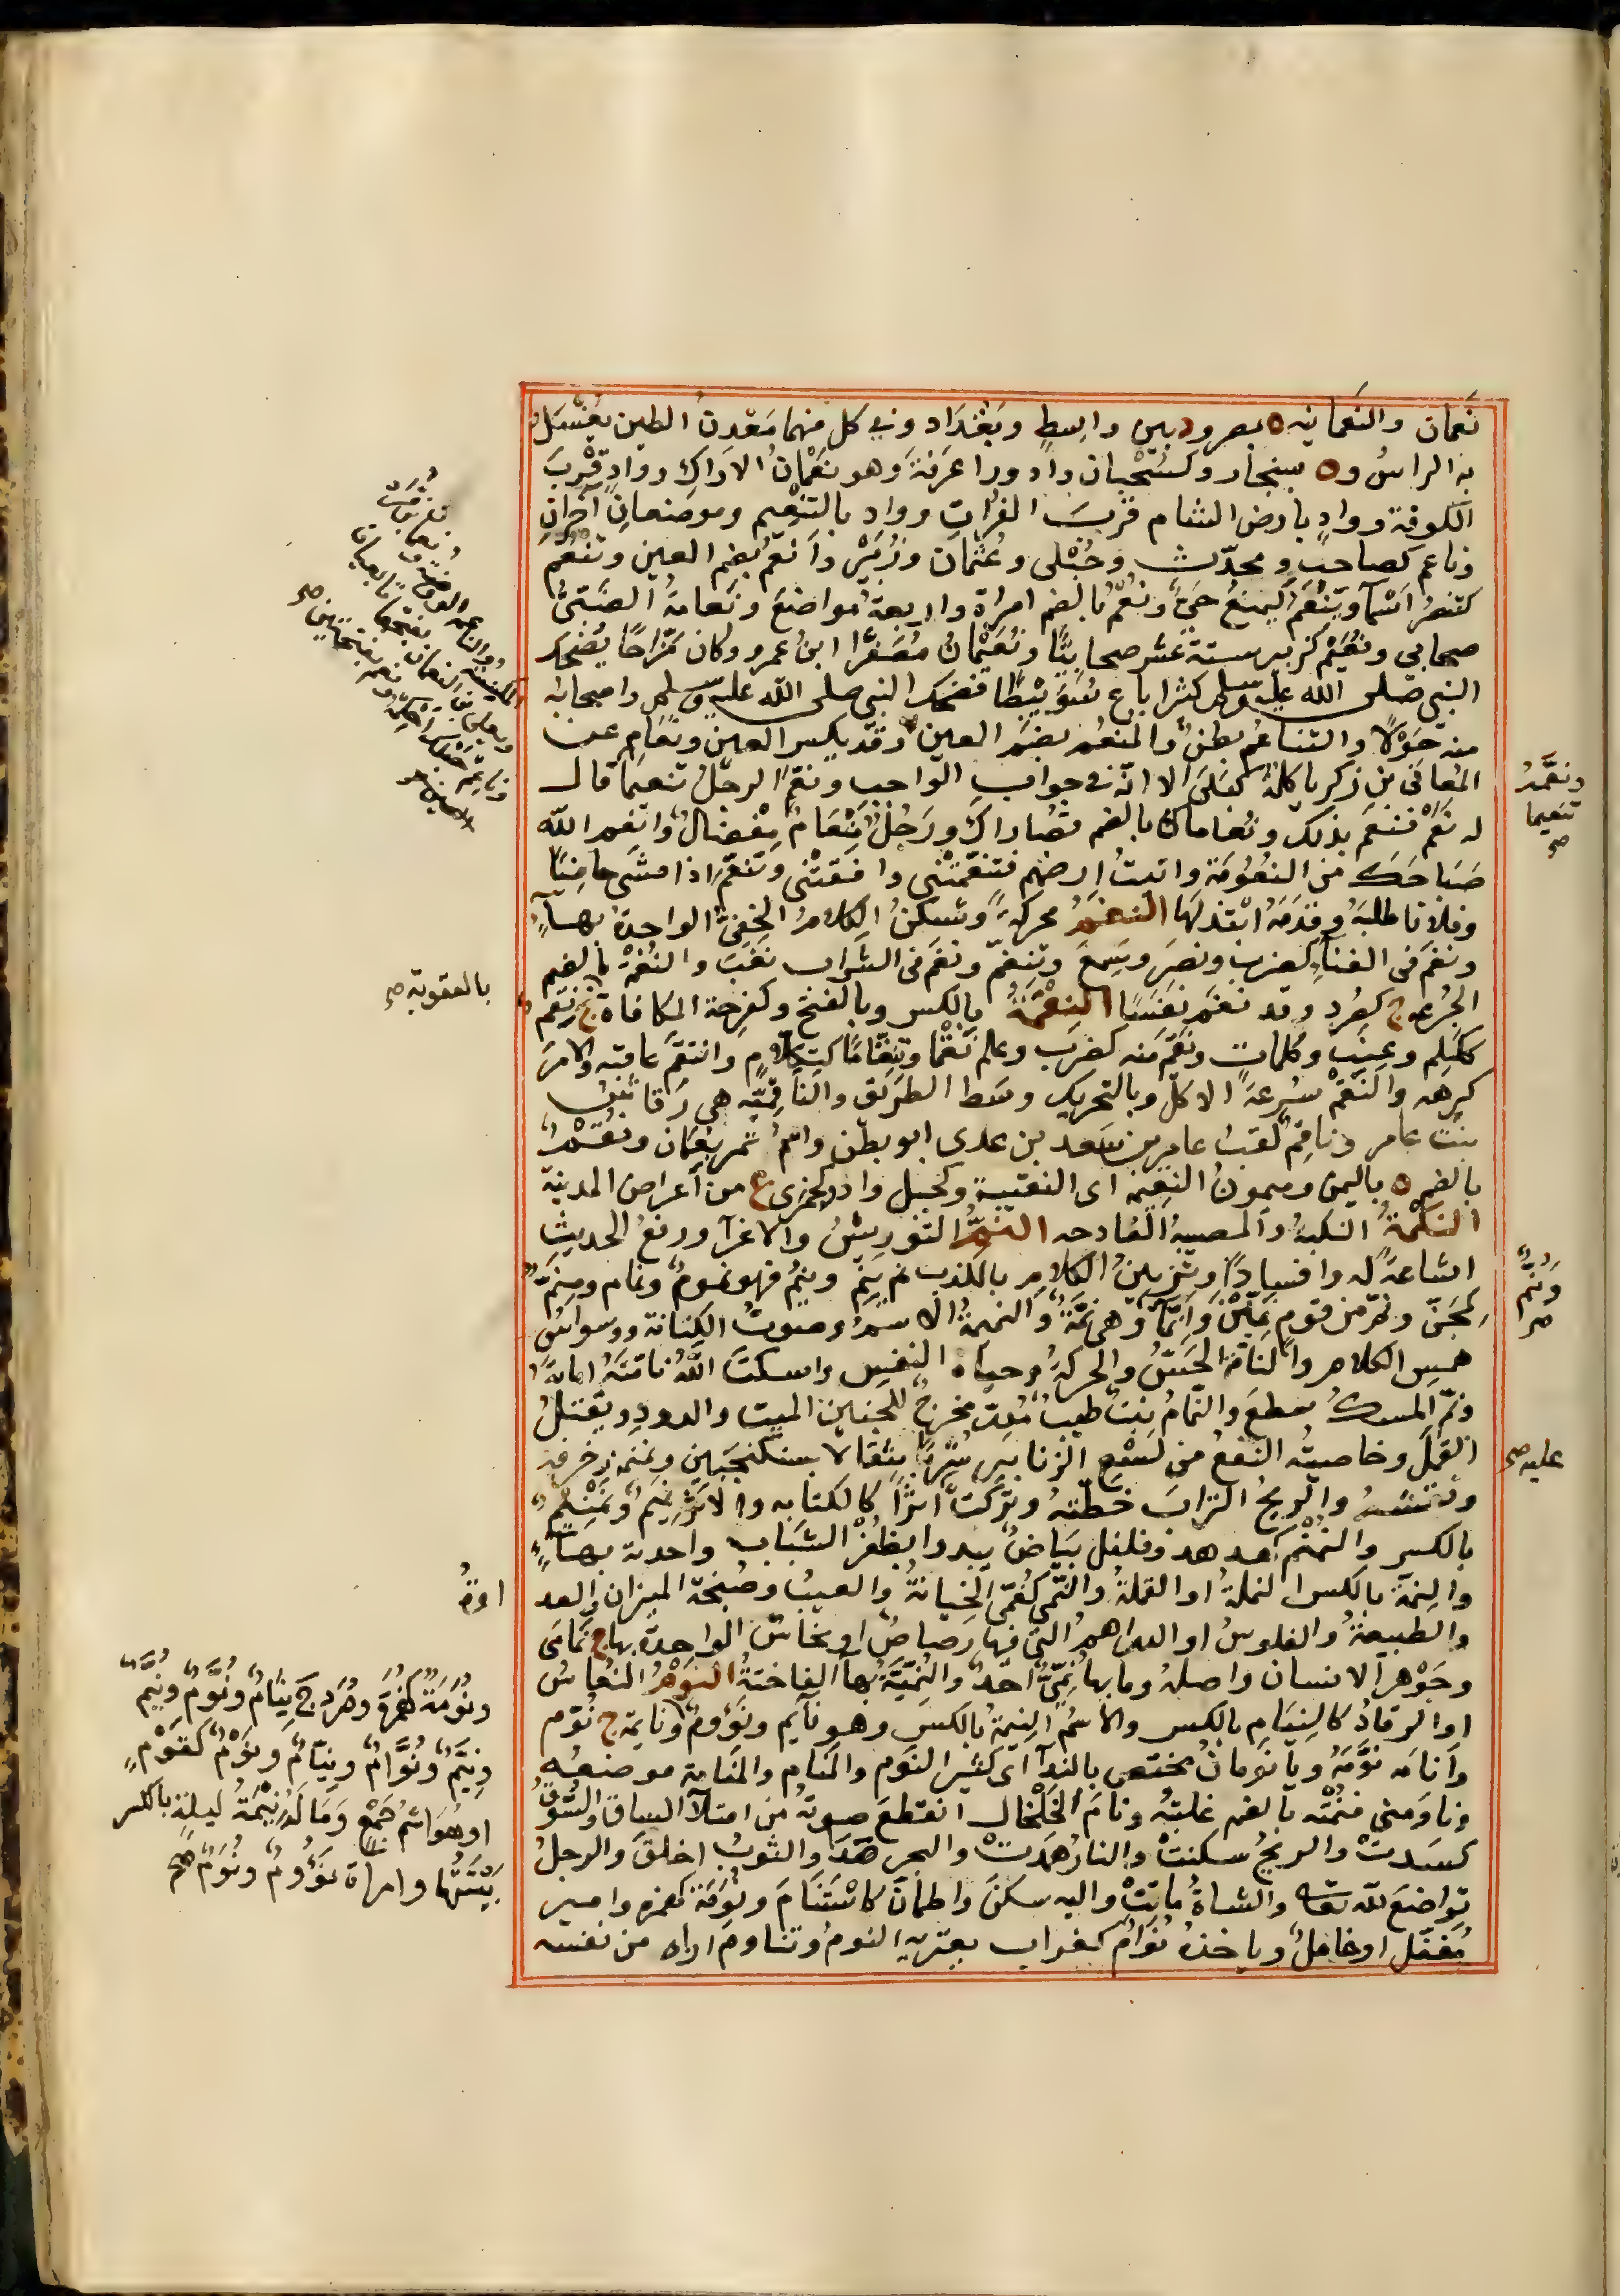 نَعْمان والنعمانية ه بمصر ود بين واسِطٍ وبَغْدَاد وفي كل منهما مَعْدِنُ الطين يُغْسَلُ
به الراسُ وه بسنجار وكسَحْبان وادٍ ورا عَرَفَةَ وهو نَعْمانُ الاراكِ ووادٍ قُرْبَ
الكوفة ووادٍ بارض الشام قربَ الفُراتِ وواد بالتنعيم وموضعانِ آخرانِ
وناعم كصاحب ومحدّث وحُبْلى وعُثْمان وزُبَيْر وأنعُم بضم العين وتَنْعُم
كتنصُرُ اسْمآ ويَنْعَمُ كيمنعُ حَيّ ونُعْمٌ بالضم امراة واربعةُ مواضعَ ونَعامةُ الضَبّىُّ
صحابي ونُعَيْم كزبير ستة عشر صحابيًا ونُعَيْمانُ مُصَغرًا ابنُ عمرو وكان مَزّاحًا يُضحك
النبي صلى الله عليه وسلم كثيرا باع سُوَيْبِطًا فضحك النبي صلى الله عليه وسلم واصحابه
منه حَوْلًا والتناعُم بطنٌ والمنعُم بضم العين وقد يكسر العين ونَعَامٍ عن
المعافى بن زكريا كلمةُ كبَلَى الا انّه في جوابِ الواجب ونعّمَ الرجلُ تنعيمًا قال
له نَعَمْ فنَعِمَ بذلك ونُعاماك بالضم قُصاراك ورَجُلٌ مِنْعامٌ مِفْضالٌ وانعِم الله
صَباحَك من النُعُومَة واتيتُ ارضهم فتَنَعَّمَتْنى وافقتْنى وتَنَعَّمَ اذا مشى حافيًا
وفلانا طلبَهُ وقَدَمَهُ ابْتَذلَها النغمُ محركة وتُسكّنُ الكلامُ الخفىُّ الواحدة بهآءٍ
ونغَم فى الغناء كضرب ونصَر وسَمِعَ وتنغّم ونغَم فى الشراب نغَبَ والنُغْمة بالضم
الجُرعه ج كصُرد وقد نغَم نَفَسًا النِقْمَةُ بالكسر وبالفتح وكفَرِحة المكافاة ج نَقِم
ككَلِم وعِنَبٍ وكلماتٍ ونقَم منه كضرب وعلم نَقْمًا وتِنِقّامًا كتِكلّامٍ وانتقَم عاقبه والامرَ
كرِهه والنَقْمُ سُرعةُ الاكل وبالتحريك وسَط الطريق والناقميّة هي رَقاشِ
بنتُ عامر وناقِم لقبُ عامرِ بن سَعد بن عدى ابو بطن واسمُ تمر بعُمَان ونُقُمٌ
بالضم ه باليمن وميمونُ النقيمة اى النقيبة وكجبل وادٍ وكجمزى ع من أعراض المدينة
النَكْمةُ النكبة والمصيبةُ الفادحه النَمُّ التَوْرِيشُ والاغرآ ورفعُ الحديثِ
اشاعةً له وافسادًا وتزيينُ الكلامِ بالكذب نَم يَنِمُّ ويَنُمُّ فهو نمومٌ ونمام ومِنَمٌّ
كمِجَنّ ونم من قوم نَمِّيْنَ وانِمّآ وهى نَمّةٌ والنميمةُ الاسمُ وصوتُ الكتابة ووسواسُ
همسِ الكلام والنامّة الحسُّ والحركةُ وحياةُ النفس واسكتَ اللهُ نامّتَهُ اماتَهُ
ونَم المسكُ سطعَ والنمّامُ نبتٌ طيبٌ مُدِرّ مخرجٌ للجنين الميت والدودِ ويقتلُ
القَمْلَ وخاصيتُه النفعُ من لَسْعِ الزنابير شُرْبًا مثقالًا بسكنجَبين ونمنمه زخرفه
ونقشهُ والريحُ الترابَ خَطّتهُ وتركَت أثرًا كالكتابه والاثرُ نِمْنِم ونِمْنِيمٌ
بالكسر والنُمْنُم كهدهد وفلفل بَيَاضٌ يبدوا بظُفْرِ الشباب واحدته بهآءٍ
والنِمّة بالكسر النملةُ او القملةُ والنُمّى كقُمّى الخِيانةُ والعيبُ وصَنجة الميزان والعد
والطبيعةُ والفلوسُ او الدراهمُ التى فيها رصاصٌ او نحاسٌ الواحدة بهاء ج نَمامىّ
وجَوْهر الانسان واصلُه وما بها نُمّىٌّ احَدٌ والنُمِّيّةُ بهآ الفاختةُ النومُ النُعاسُ
او الرقادُ كالنِيَامِ بالكسر والاسمُ النِيمةُ بالكسر وهو نايم ونَؤُومٌ ونايمة ج نُوّم
وأنامَه نوّمَهُ ويا نَومانُ مختص بالندآ اى كثير النَوم والمَنام والمَنَامة موضعُه
وناوَمنى فنُمْتُه بالضم غلبتُه ونامَ الخَلْخال انقطعَ صوتُه من امتلآ الساق والسوقُ
كسَدتْ والريحُ سكنتْ والنارُ هَمدتْ والبحر هَدَا والثوبُ اخلقَ والرجلُ
تواضعَ لله تعالى والشاةُ ماتَتْ واليه سكنَ واطمأنّ كاسْتَنَامَ ونُوَمَة كهمزه وامير
مُغفّل او خاملٌ وياخذه نُوَامٌ كغراب يعتريه النومُ وتناوم اراه من نفسه
ونعّمهُ
تنعيما
صح
بالعقوبة صح
وَنُمٌّ
صح
عليه صح
او
ونُوَمَةٌ كهُمَزَةٍ وصُرَدٍ ج نِيَامٌ ونُوَّمٌ ونُيَّمٌ
ونِيَّمٌ ونُوَّامٌ ونُيّامٌ ونَوْمٌ كقَوْمٍ
او هُوَ اسْمُ جَمْعٍ وَمَا لَهُ نِيْمَةُ ليلةٍ بالكسر
بَيْتَتُها وامراة نَؤُومٌ ونُوّمٌ صح